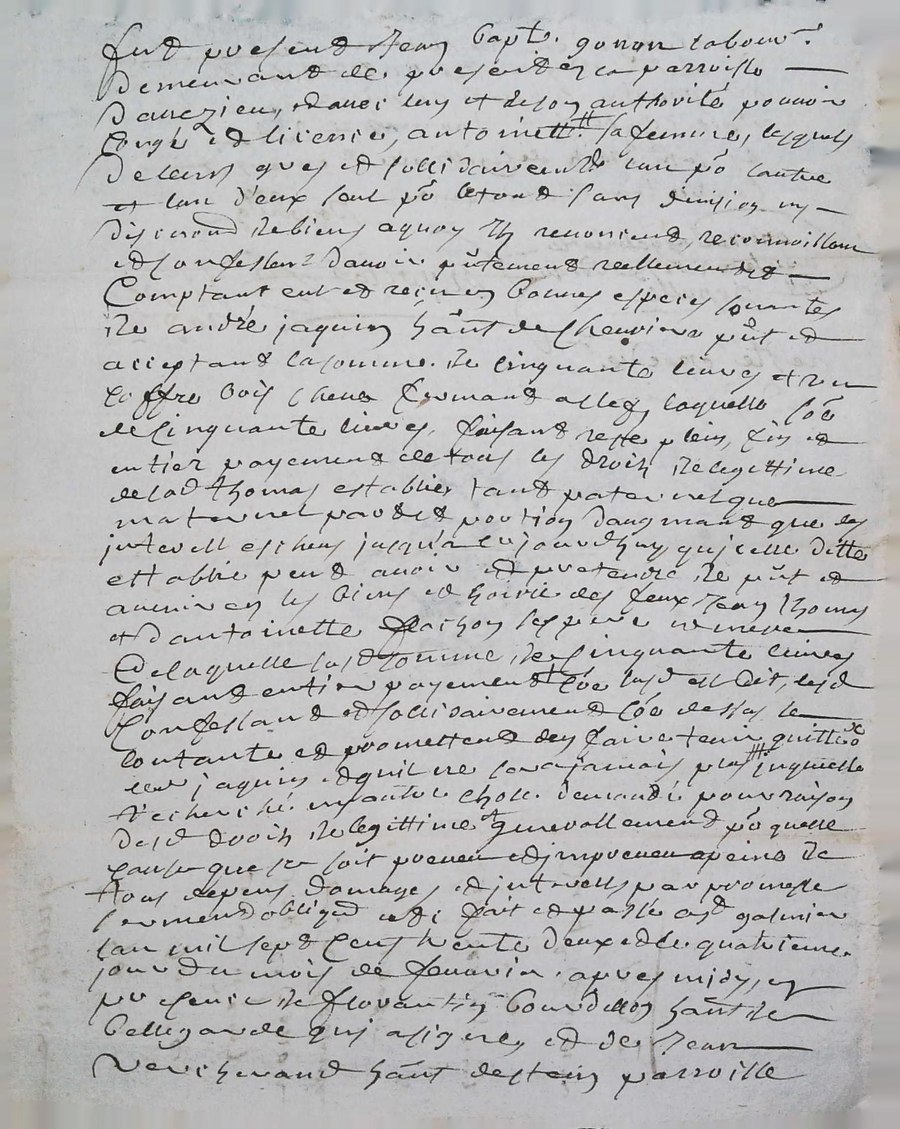 fut present Jean Bapt. gonon labour.r
demeurant de present en la parroisse
davezieu, et avec luy et de son authorité pouvoir
congé et licence, antoinette sa femme, lesquels
de leurs grés et sollidairement lun po lautre
et lun d'eux seul po letout sans division ny
discution de biens a quoy ils renoncent, reconnoissent
et confessent davoir putement reellement et
Comptant eub et receu en bonnes especes sonantes
de andré jaquin hant de Chevrieres put et
acceptant la somme de cinquante livres et un
coffre bois chene fermant a clef, laquelle soe
de cinquante livres, faisant reste plein, fin et
entier payement de tous les droits de legittime
de lad thomas establie, tant paternel que
maternel part et portion daugmant que des
interest escheus jusqu'a ce jourdhuy qu'icelle ditte
establie peut avoir et pretendre de put et
avenir en les biens et hoirie des feux Jean thomas
et dantoinette flachon ses pere et mere
de laquelle susd somme de cinquante livres
faisant entier payement coe susd est dit, lesd
confessant et sollidairement coe dessus se
contante et promettent den faire tenir quitte
led jaquin et quil ne sera jamais plus inquietté
recherché ny autre chose demandé pour raison
desd droits de legittime et generallement po quelle
cause que ce soit preveu et impreveu a peine de
tous depens domages et interests par promesse
serment obligaon etc fait et passé aud galmier
lan mil sept cent trente deux et le quatrieme
jour du mois de fevrier apres midy, en
presence de florantin bourdellon hant de
bellegarde qui a signe, et de Jean
Vericherand hant destein parroisse